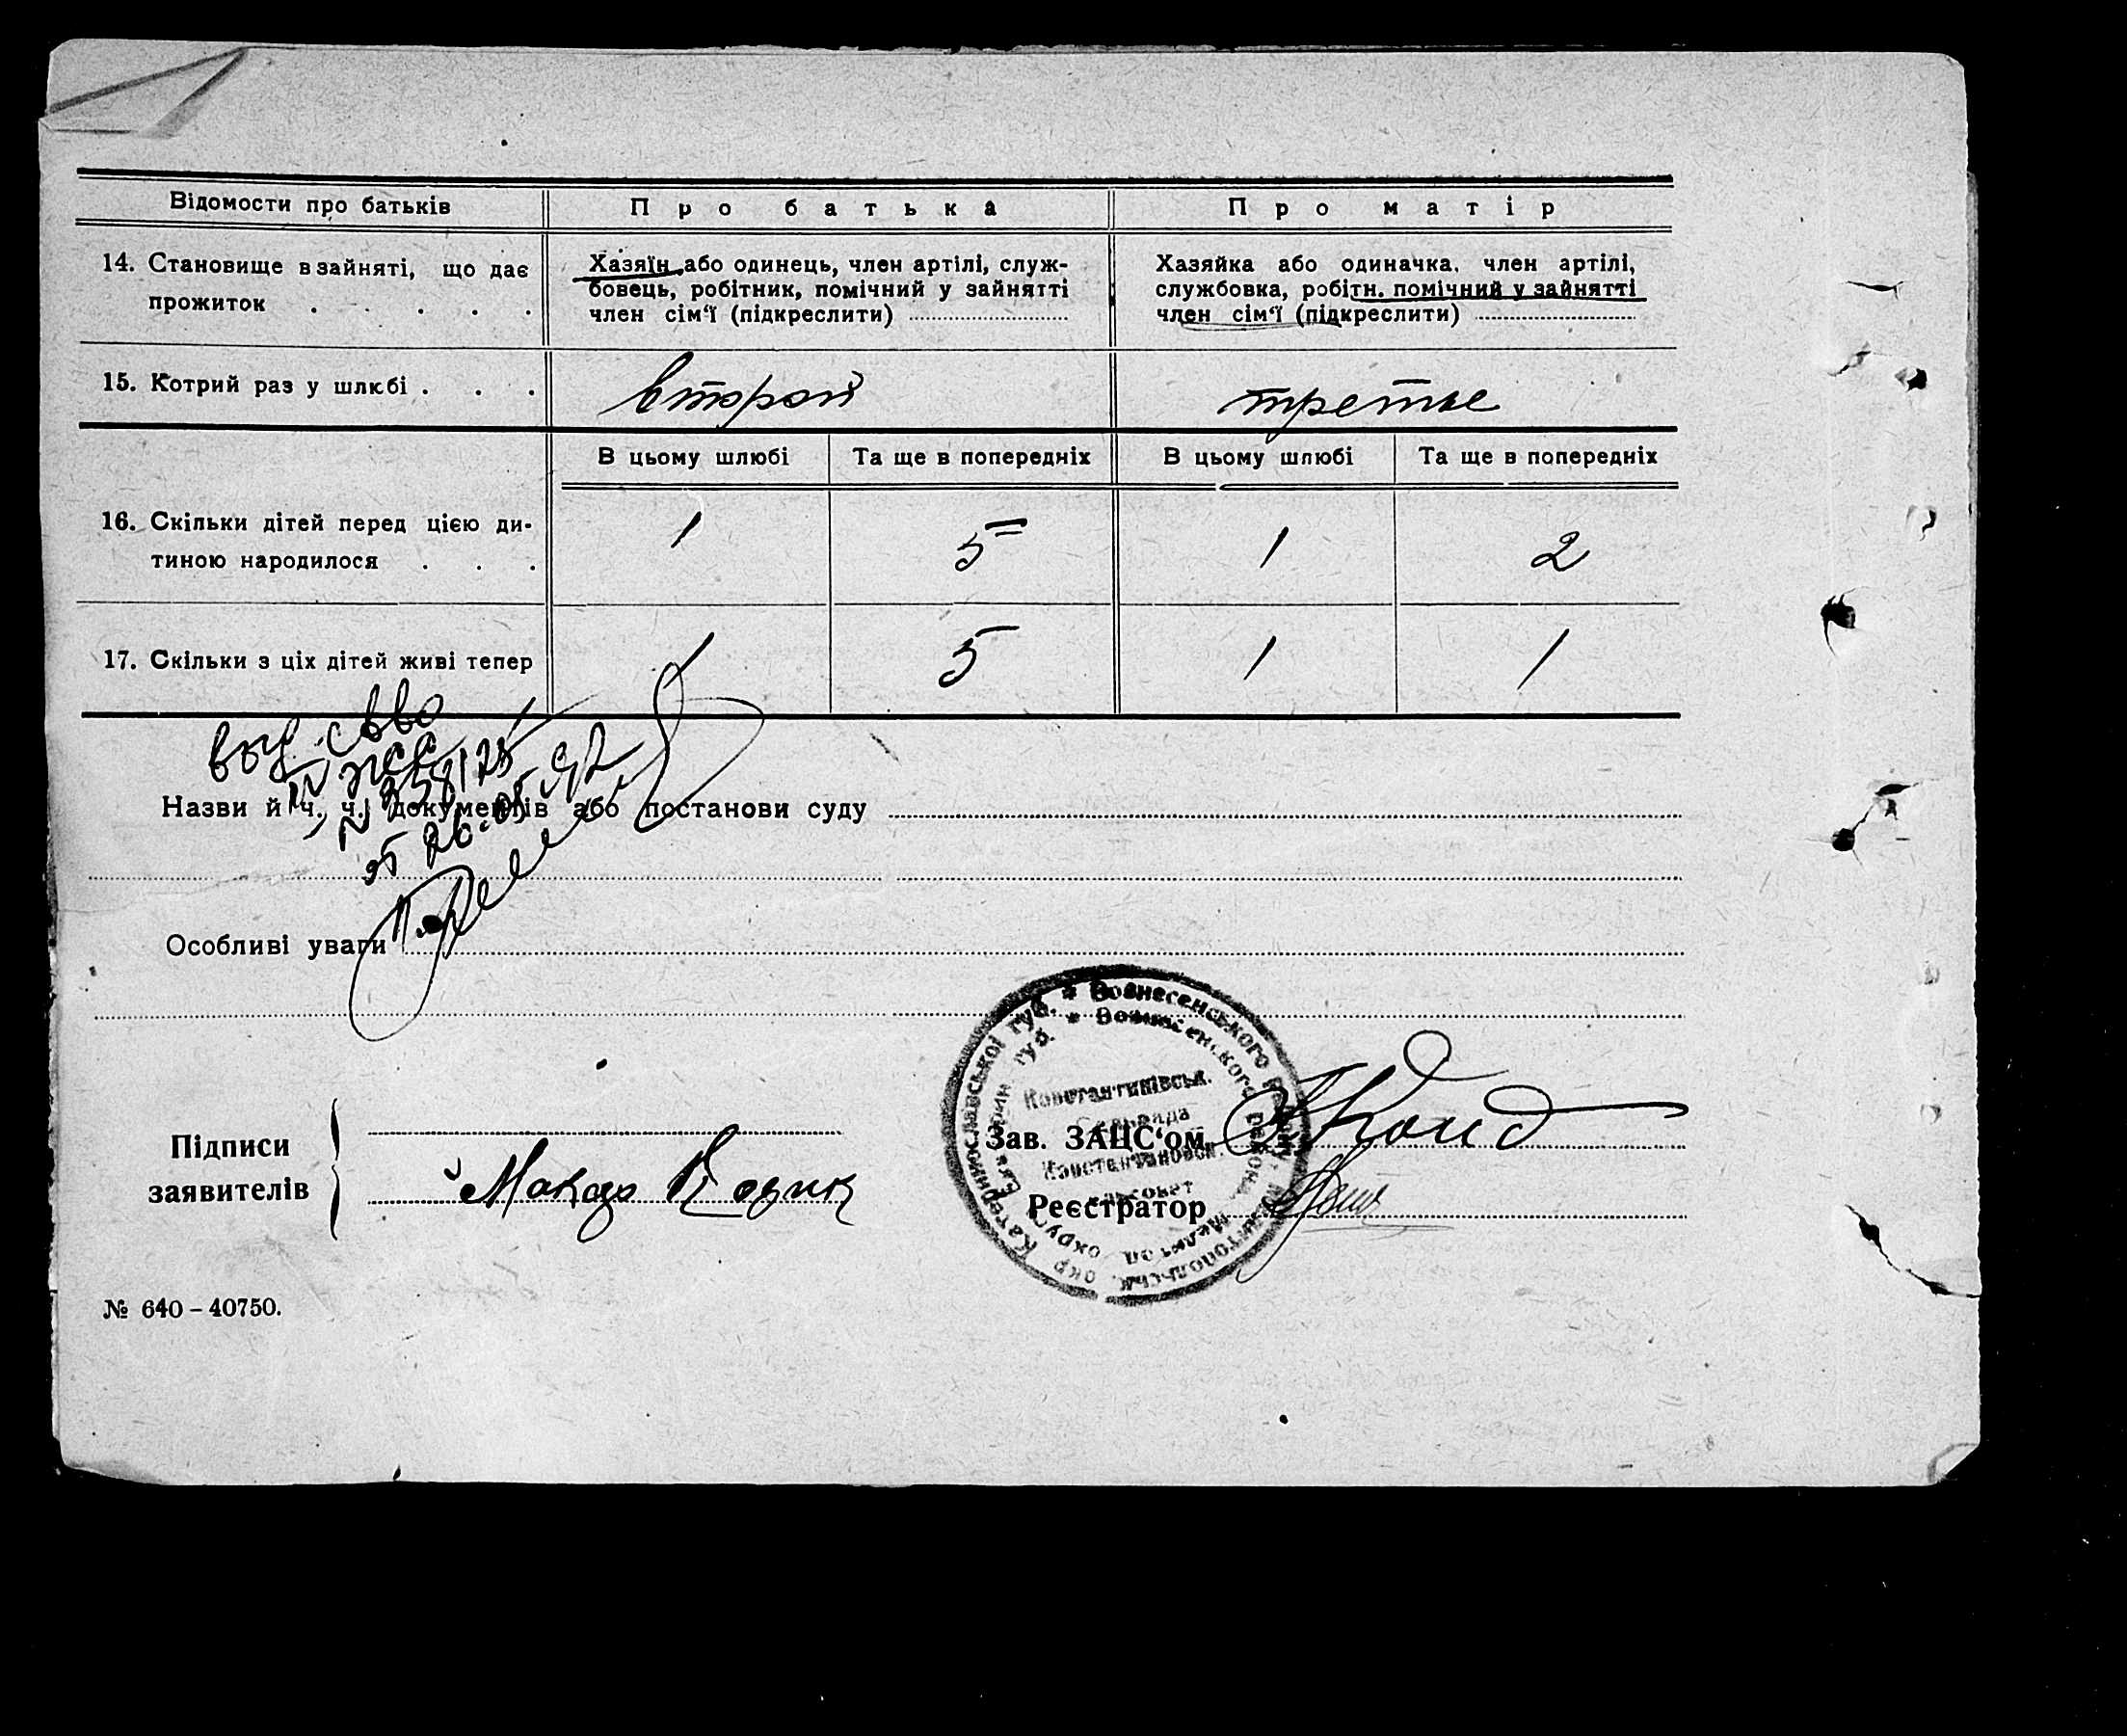 Відомости про батьків
Про батька
Про матір
14. Становище в зайняті, що дає
прожиток . . . . .
Хазяїн або одинець, член артілі, служ-
бовець, робітник, помічний у зайнятті
член сім'ї (підкреслити)
Хазяйка або одиначка, член артілі,
службовка, робітн. помічний у зайнятті
член сім'ї (підкреслити)
15. Котрий раз у шлюбі . . .
второй
третье
В цьому шлюбі
Та ще в попередніх
В цьому шлюбі
Та ще в попередніх
16. Скільки дітей перед цією ди-
тиною народилося . . .
1
5
1
2
17. Скільки з ціх дітей живі тепер
1
5
1
1
выд. с-во
Назви й ч. ч. документів або постанови суду
Особливі уваги
Підписи
заявителів
Макар
Зав. ЗАЦС'ом
Реєстратор
Катеринославської губ. * Вознесенського
Константинівськ.
Сільрада
Константиновск.
сельсовет
№ 640 – 40750.